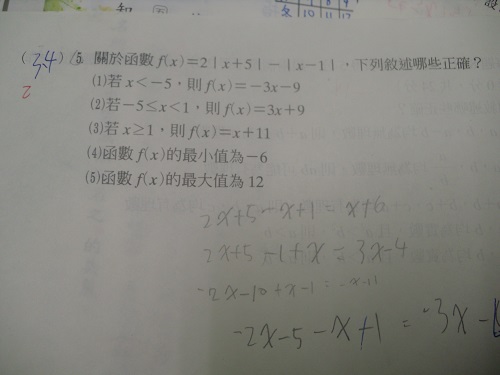 冬 10 11 12
(34) 5. 關於函數 f(x)=2|x+5|-|x-1|,下列敘述哪些正確?
2
(1)若 x<-5,則 f(x)=-3x-9
(2)若-5≤x<1,則 f(x)=3x+9
(3)若 x≥1,則 f(x)=x+11
(4)函數 f(x)的最小值為-6
(5)函數 f(x)的最大值為 12
2x+5-x+1=x+6
2x+5-1+x=3x-4
-2x-10+x-1=-x-11
-2x-5-x+1=-3x-